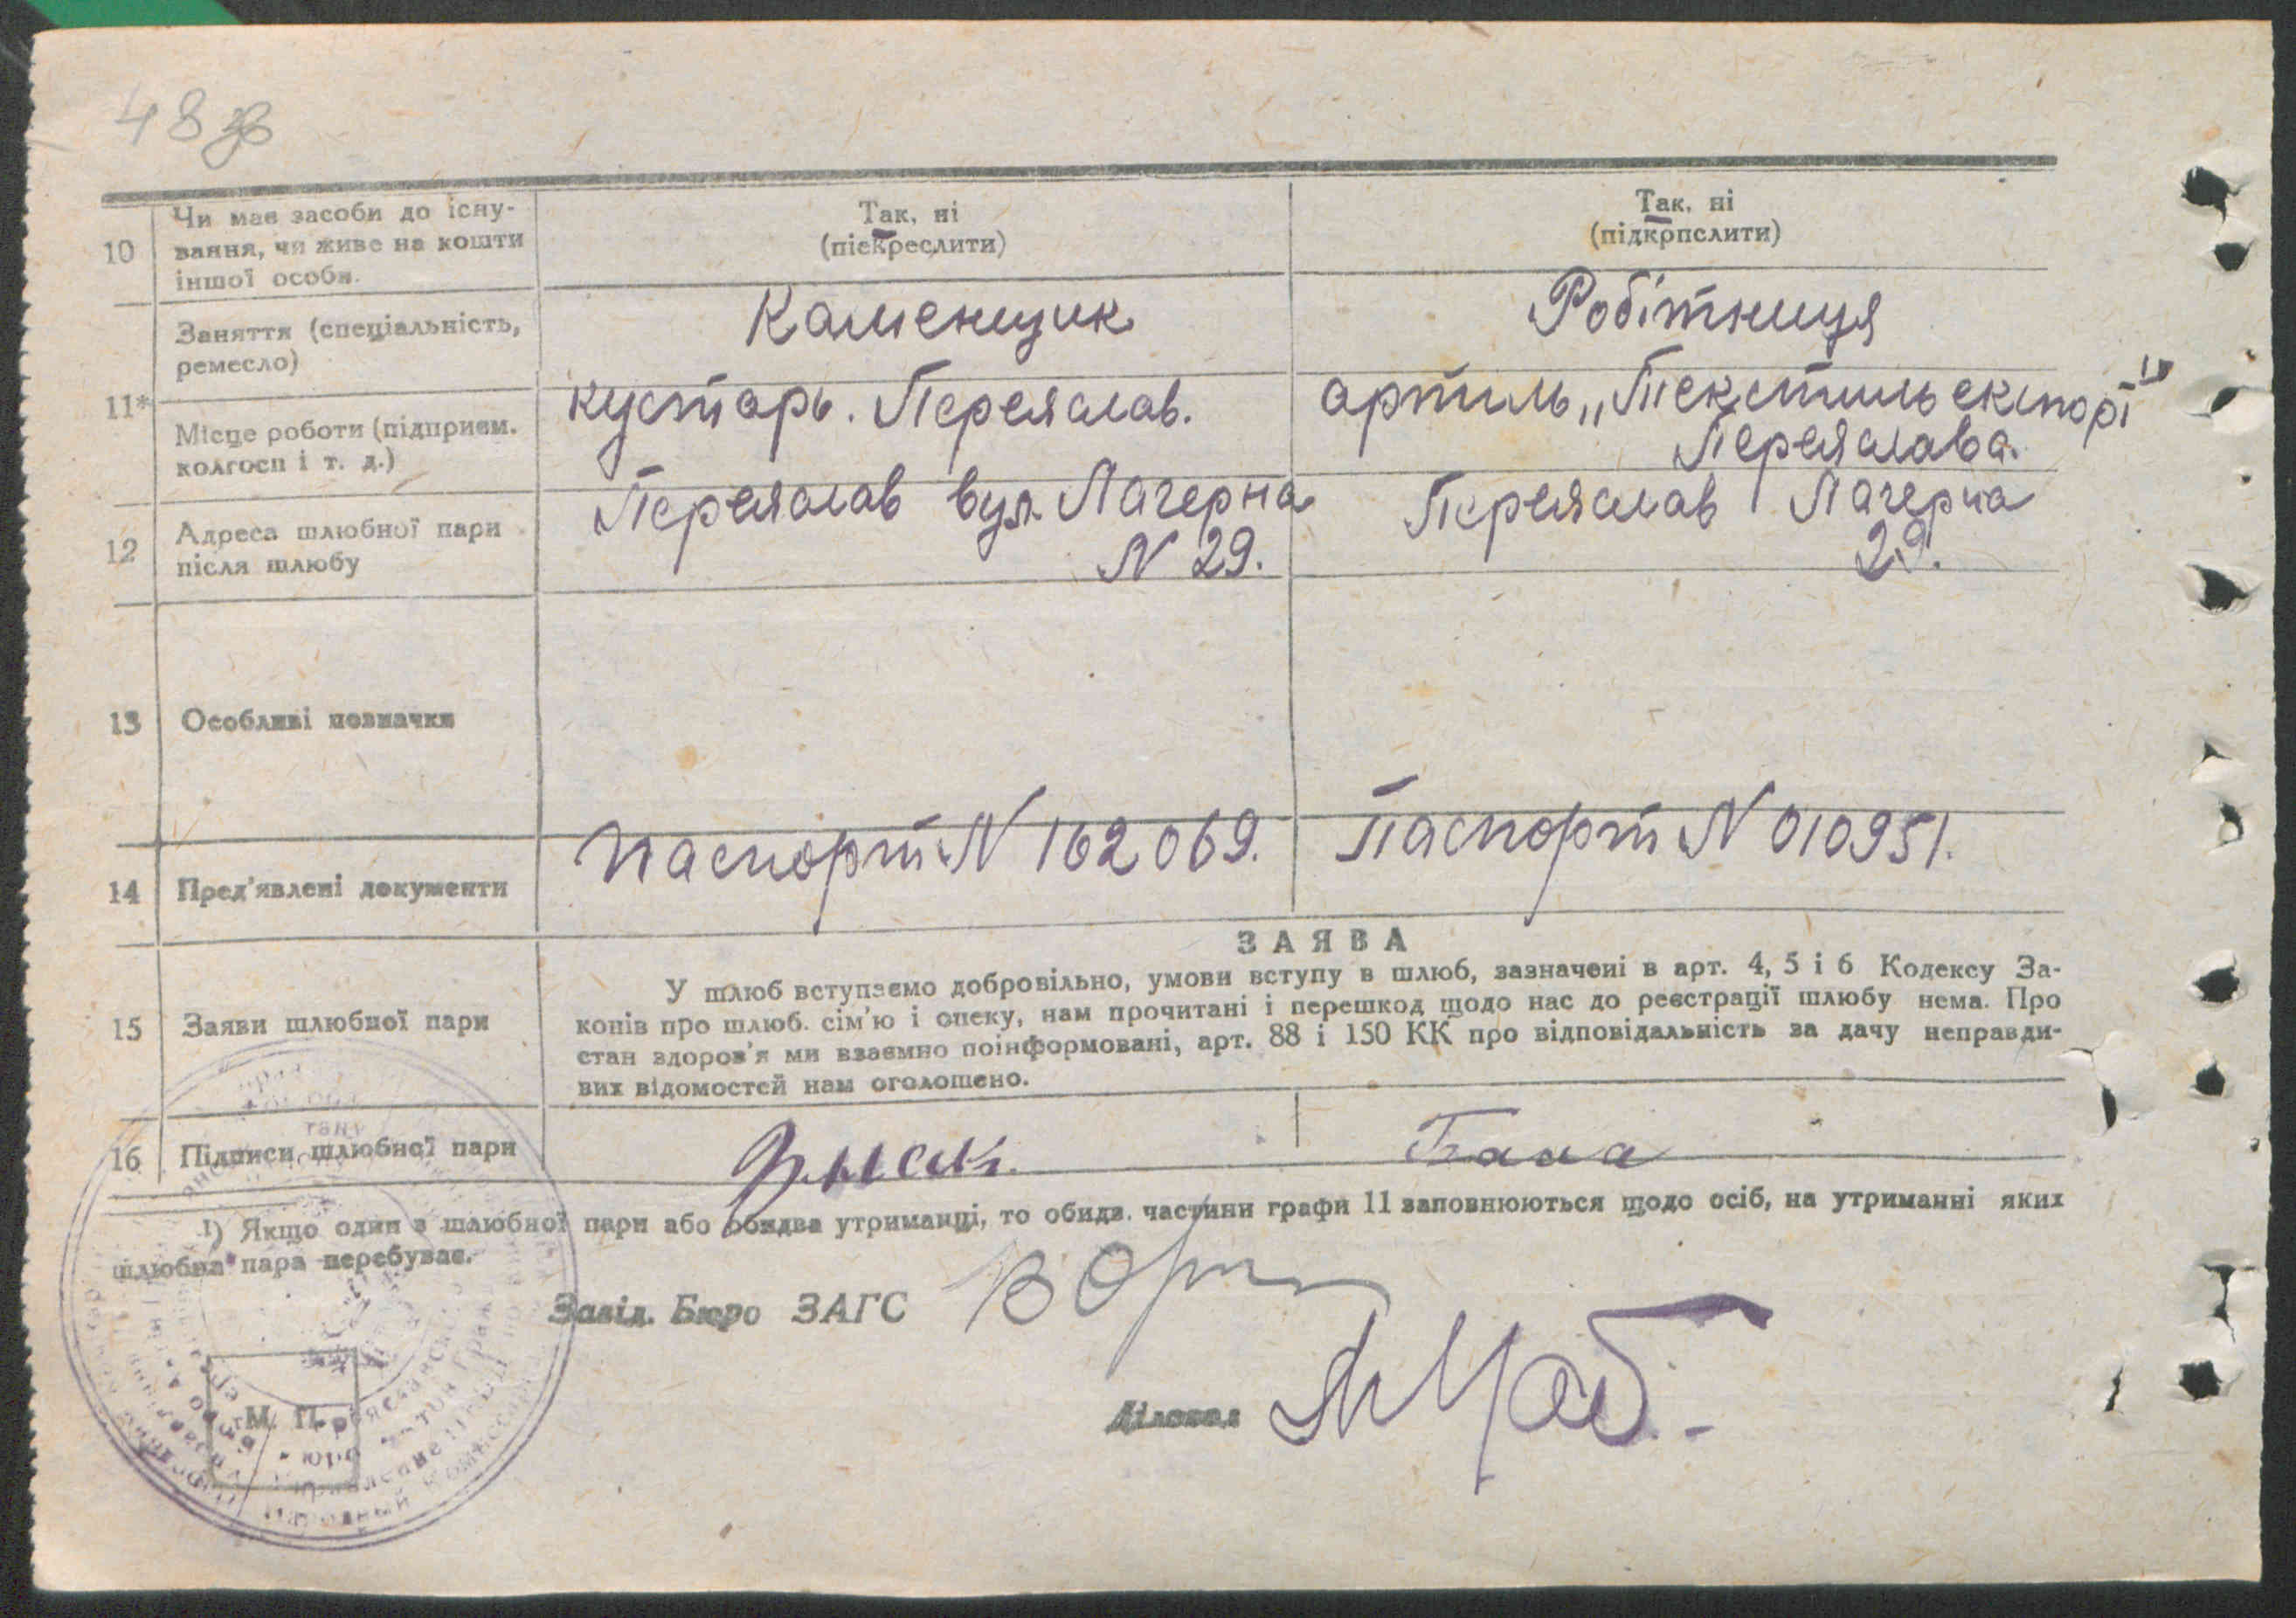 48 зв
10
Чи має засоби до існу-
вання, чи живе на кошти
іншої особи.
Так, ні
(піекреслити)
Так, ні
(підкрпслити)
11*
Заняття (спеціальність,
ремесло)
Каменщик
Робітниця
Місце роботи (підприєм.
колгосп і т. д.)
кустарь. Переяслав.
артиль „Текстильекспорт"
Переяслава.
12
Адреса шлюбної пари
після шлюбу
Переяслав вул. Лагерна
N 29.
Переяслав Лагерна
29.
13
Особливі позначки
14
Пред'явлені документи
Паспорт N 162069.
Паспорт N 010951.
15
Заяви шлюбної пари
ЗАЯВА
У шлюб вступаємо добровільно, умови вступу в шлюб, зазначені в арт. 4, 5 і 6 Кодексу За-
конів про шлюб. сім'ю і опеку, нам прочитані і перешкод щодо нас до реєстрації шлюбу нема. Про
стан здоров'я ми взаємно поінформовані, арт. 88 і 150 КК про відповідальність за дачу неправди-
вих відомостей нам оголошено.
16
Підписи шлюбної пари
¹) Якщо один з шлюбної пари або обидва утриманці, то обидв. частини графи 11 заповнюються щодо осіб, на утриманні яких
шлюбна пара перебуває.
Завід. Бюро ЗАГС
Діловод
М. П.